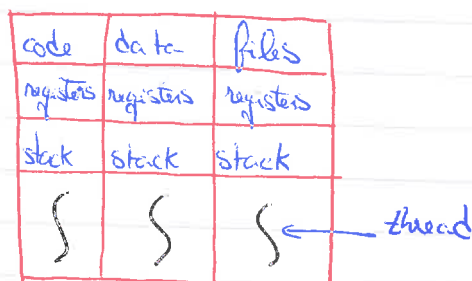 code data files
registers registers registers
stack stack stack
thread